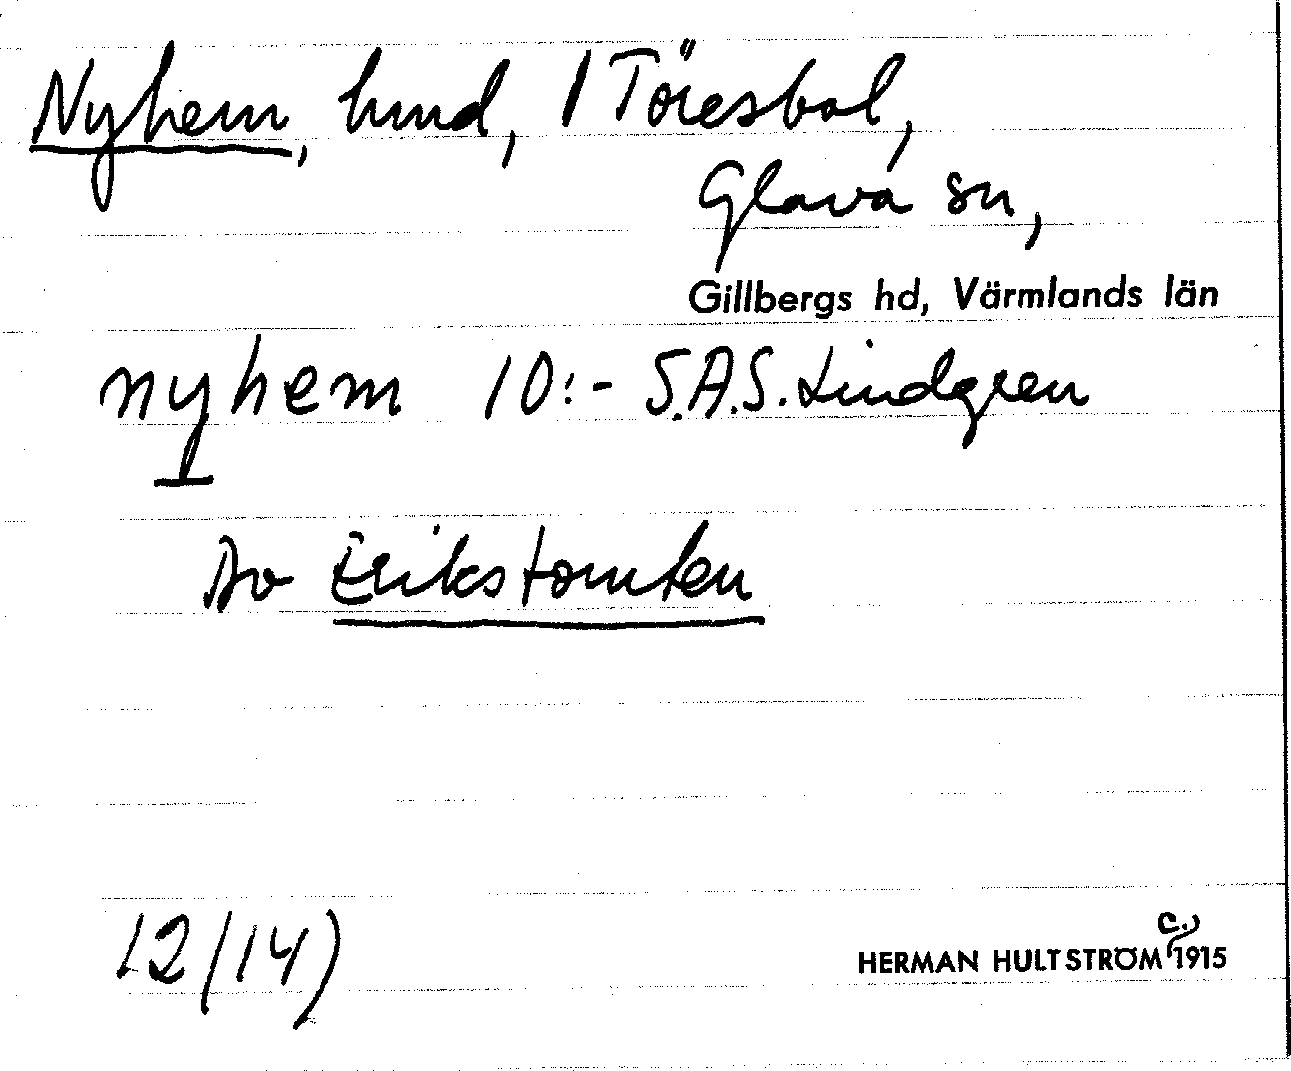 Nyhem, hmd, 1 Töresbol,
Glava sn,
Gillbergs hd, Värmlands län
nyhem 10:- S.A.S. Lindgren
Av Erikstomten
12(14)
c.
HERMAN HULTSTRÖM 1915